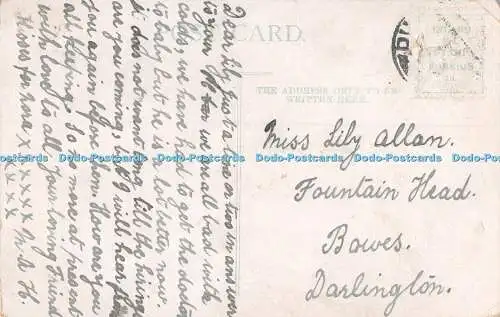 POSTCARD.
THE ADDRESS ONLY TO BE
WRITTEN HERE.
Dear Lily Just a line or two in answer
to your we are all bad with
colds, we have had to get the doctor
to baby but he is a lot better now.
it does not want long till the hirings
are you coming, but I will hear from
you again before then. How are you
all keeping. So no more at present
with love to all your loving Friend
Kisses for here xxxxxx M. A. H.
xxx
Miss Lily Allan.
Fountain Head.
Bowes.
Darlington.
Dodo-Postcards Dodo-Postcards Dodo-Postcards Dodo-Postcards Dodo-Postcards